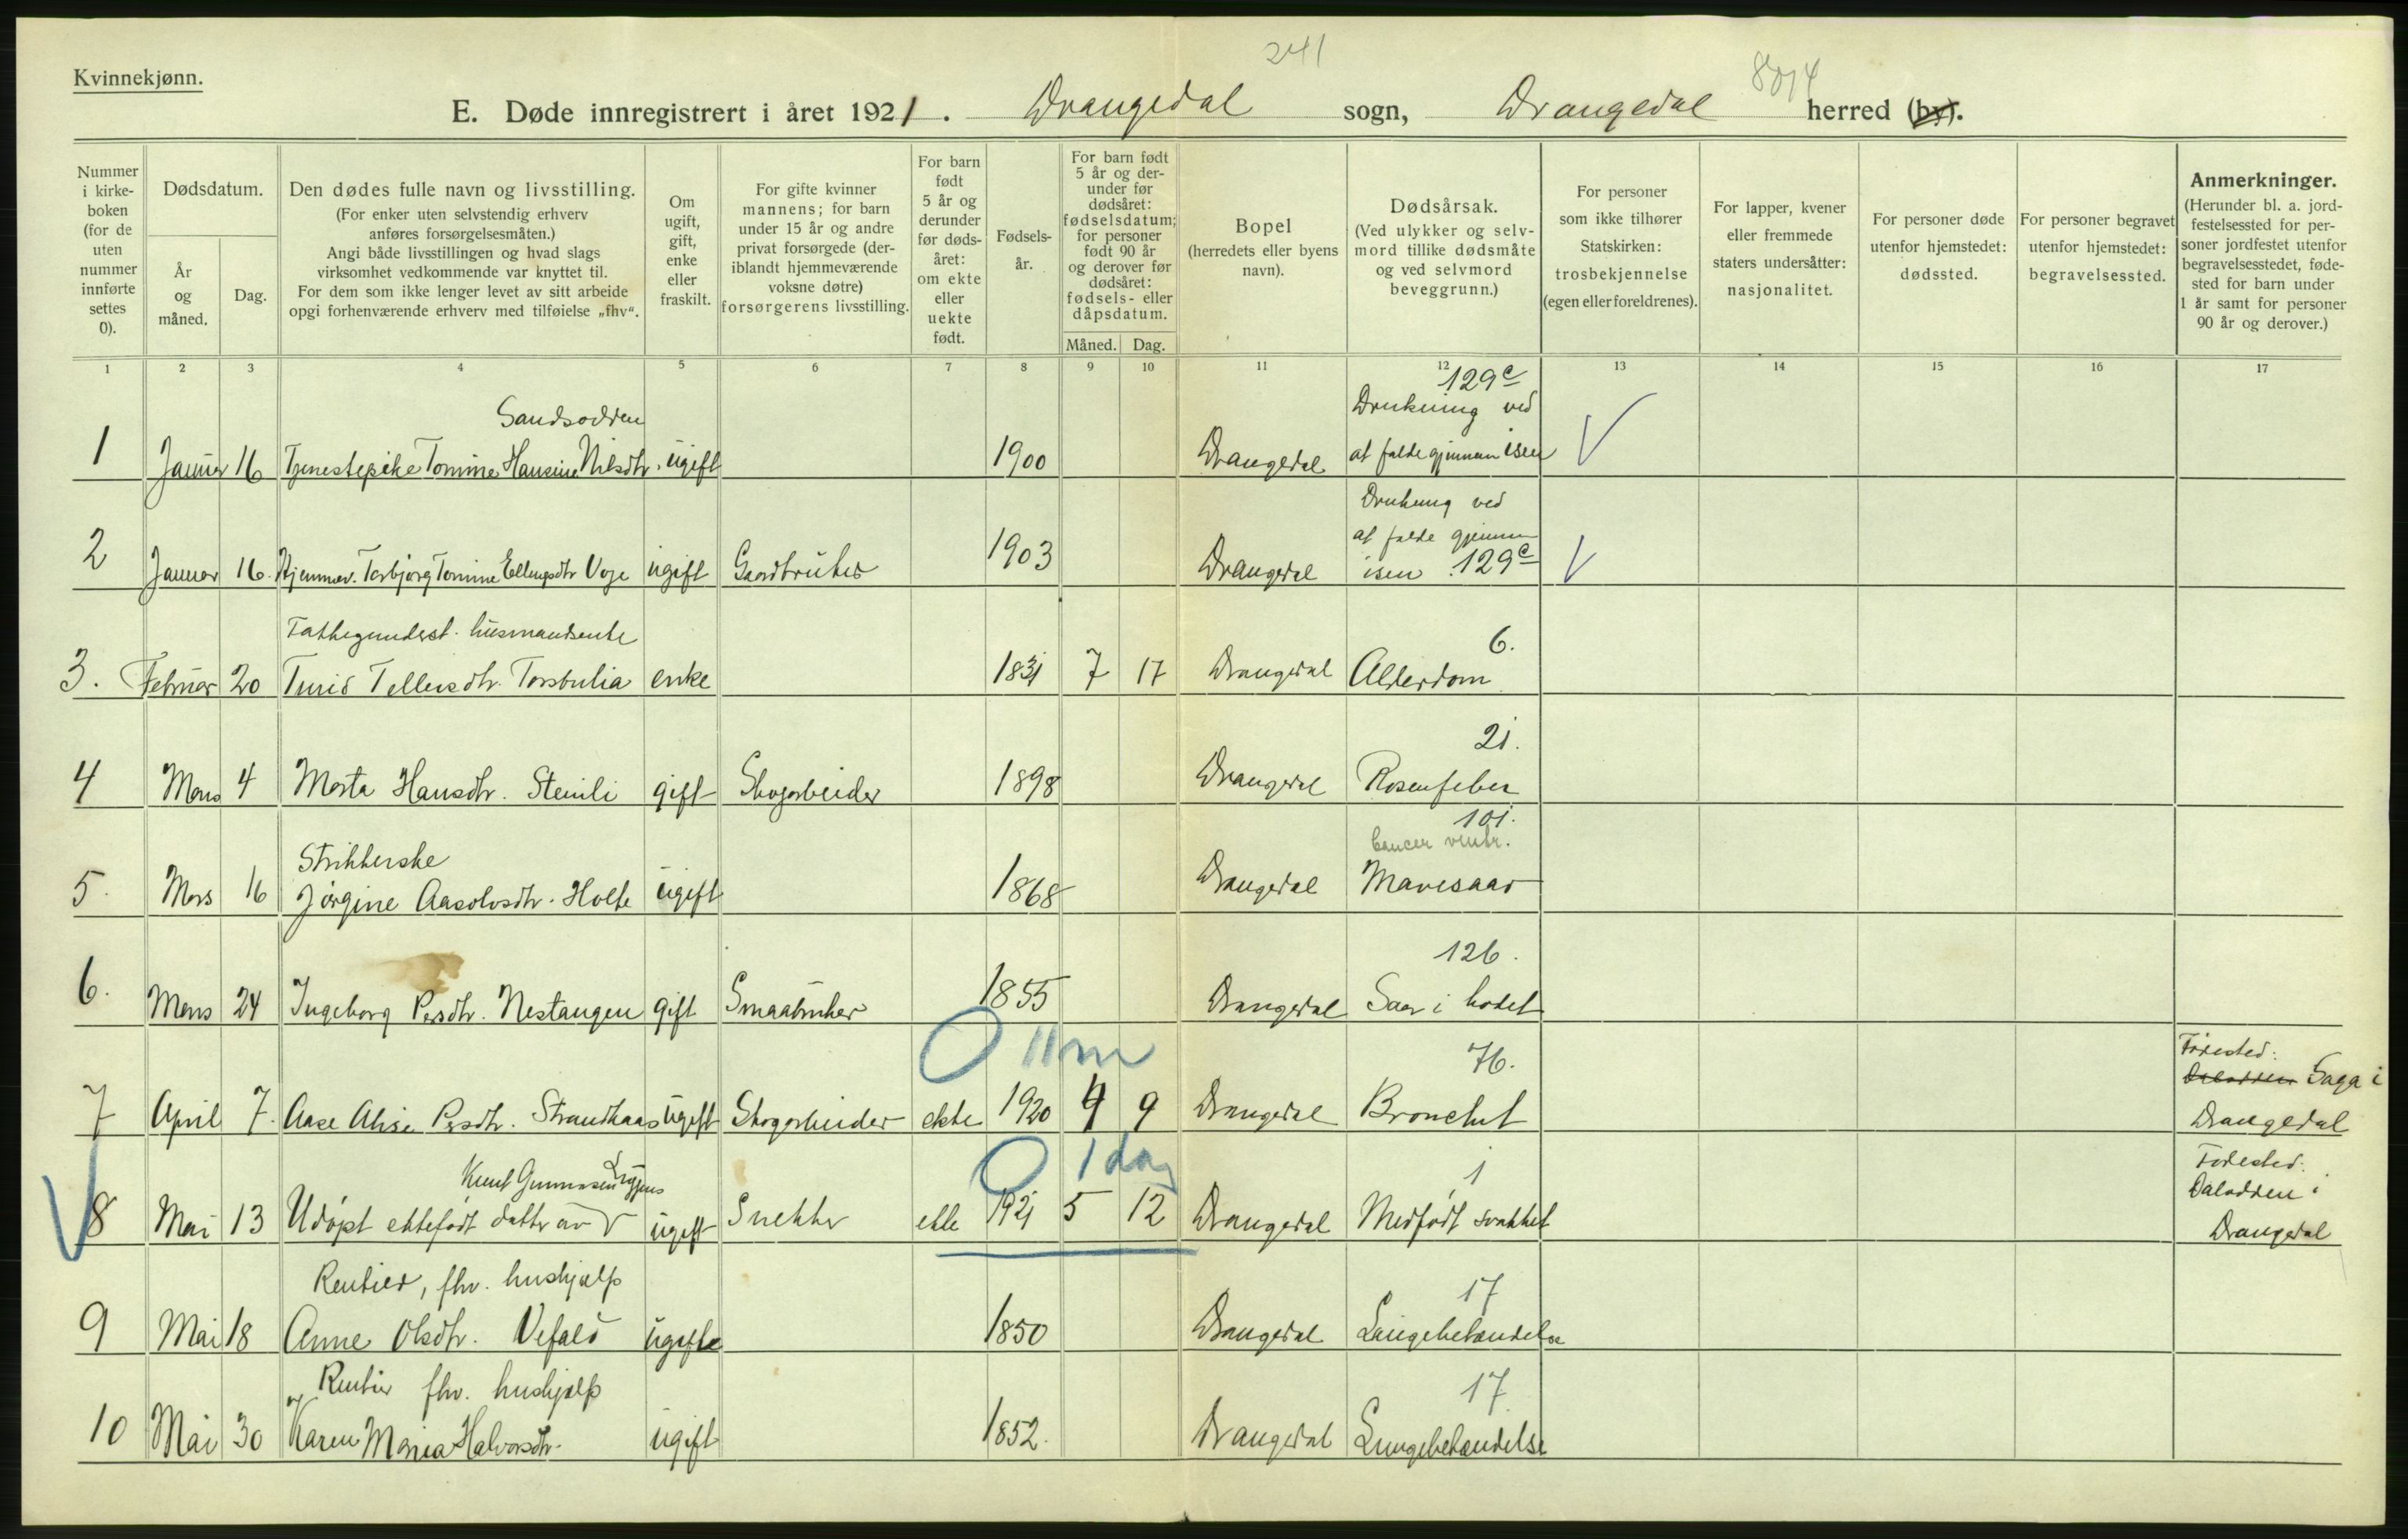 241
8014
Kvinnekjønn.
E. Døde innregistrert i året 1921. Drangedal sogn, Drangedal herred (by).
Nummer i kirke- boken (for de uten nummer innførte settes 0).
Dødsdatum.
År og måned.
Dag.
Den dødes fulle navn og livsstilling.
(For enker uten selvstendig erhverv
anføres forsørgelsesmåten.)
Angi både livsstillingen og hvad slags
virksomhet vedkommende var knyttet til.
For dem som ikke lenger levet av sitt arbeide
opgi forhenværende erhverv med tilføielse „fhv“.
Om ugift, gift, enke eller fraskilt.
For gifte kvinner
mannens; for barn
under 15 år og andre
privat forsørgede (der-
iblandt hjemmeværende
voksne døtre)
forsørgerens livsstilling.
For barn født 5 år og derunder før døds- året: om ekte eller uekte født.
Fødsels- år.
For barn født
5 år og der-
under før
dødsåret:
fødselsdatum;
for personer
født 90 år
og derover før
dødsåret:
fødsels- eller
dåpsdatum.
Måned. Dag.
Bopel
(herredets eller byens
navn).
Dødsårsak.
(Ved ulykker og selv-
mord tillike dødsmåte
og ved selvmord
beveggrunn.)
For personer
som ikke tilhører
Statskirken:
trosbekjennelse
(egen eller foreldrenes).
For lapper, kvener
eller fremmede
staters undersåtter:
nasjonalitet.
For personer døde
utenfor hjemstedet:
dødssted.
For personer begravet
utenfor hjemstedet:
begravelsessted.
Anmerkninger.
(Herunder bl. a. jord-
festelsessted for per-
soner jordfestet utenfor
begravelsesstedet, føde-
sted for barn under
1 år samt for personer
90 år og derover.)
1 2 3 4 5 6 7 8 9 10 11 12 13 14 15 16 17
129c
Sandsodden Drukning ved
1 Januar 16 Tjenestepike Tomine Hansine Nilsdtr. ugift 1900 Drangedal at falde gjennem isen
Drukning ved
at falde gjennem
2 Januar 16. Hjemmev. Torbjørg Tomine Ellingsdtr Voje ugift Gaardbruker 1903 Drangedal isen 129c
Fattigunderst. husmandsenke 6.
3. Februar 20 Turid Tellevsdtr. enke 1831 7 17 Drangedal Alderdom
21.
4 Mars 4 Marta Hansdtr. Steinli gift Skogarbeider 1898 Drangedal Rosenfeber
101.
Strikkerske Cancer ventr.
5. Mars 16 Jørgine Aasolvsdtr. Holte ugift 1868 Drangedal Mavesaar
126.
6. Mars 24 Ingeborg Persdtr. Nestangen gift Smaabruker 1855 Drangedal Saar i hodet
0 11 m 76. Fødested:
Saga i
7 April 7. Aase Alise Persdtr. Strandhaas ugift Skogarbeider ekte 1920 4 9 Drangedal Bronchit Drangedal
0 1 dag 1 Fødested:
Knut Gunnarsen Daladden i
8 Mai 13 Udøpt ektefødt datter av ugift Snekker ekte 1921 5 12 Drangedal Medfødt svakhet Drangedal
Rentier, fhv. hushjælp 17
9 Mai 18 Anne Olsdtr. Vefald ugifte 1850 Drangedal Lungebetændelse
Rentier fhv. hushjælp 17
10 Mai 30 Karen Maria Halvorsdtr. ugift 1852. Drangedal Lungebetændelse